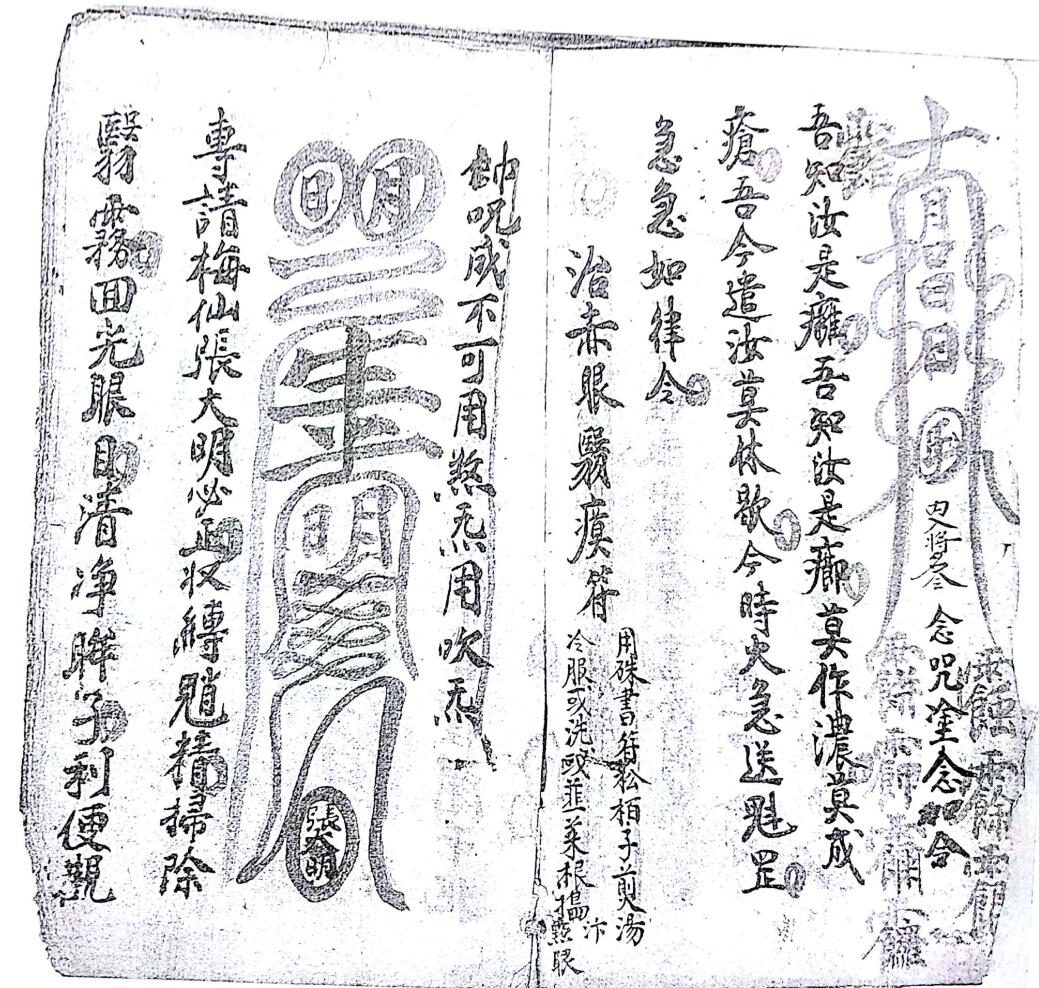 內將參 念咒塗念如合
吾知汝是癰吾知汝是癤莫作濃莫成
瘡吾今遣汝莫休歇今時火急送魁罡
急急如律令
治赤眼翳瘼符
用硃書符松柏子煎湯
冷服或洗或韮菜根搵汴點眼
咒成不可用煞炁用吹炁一
日月
明
張大明
專請梅仙張大明必正收縛魈精掃除
翳霧回光眼目清净眸子利便觀